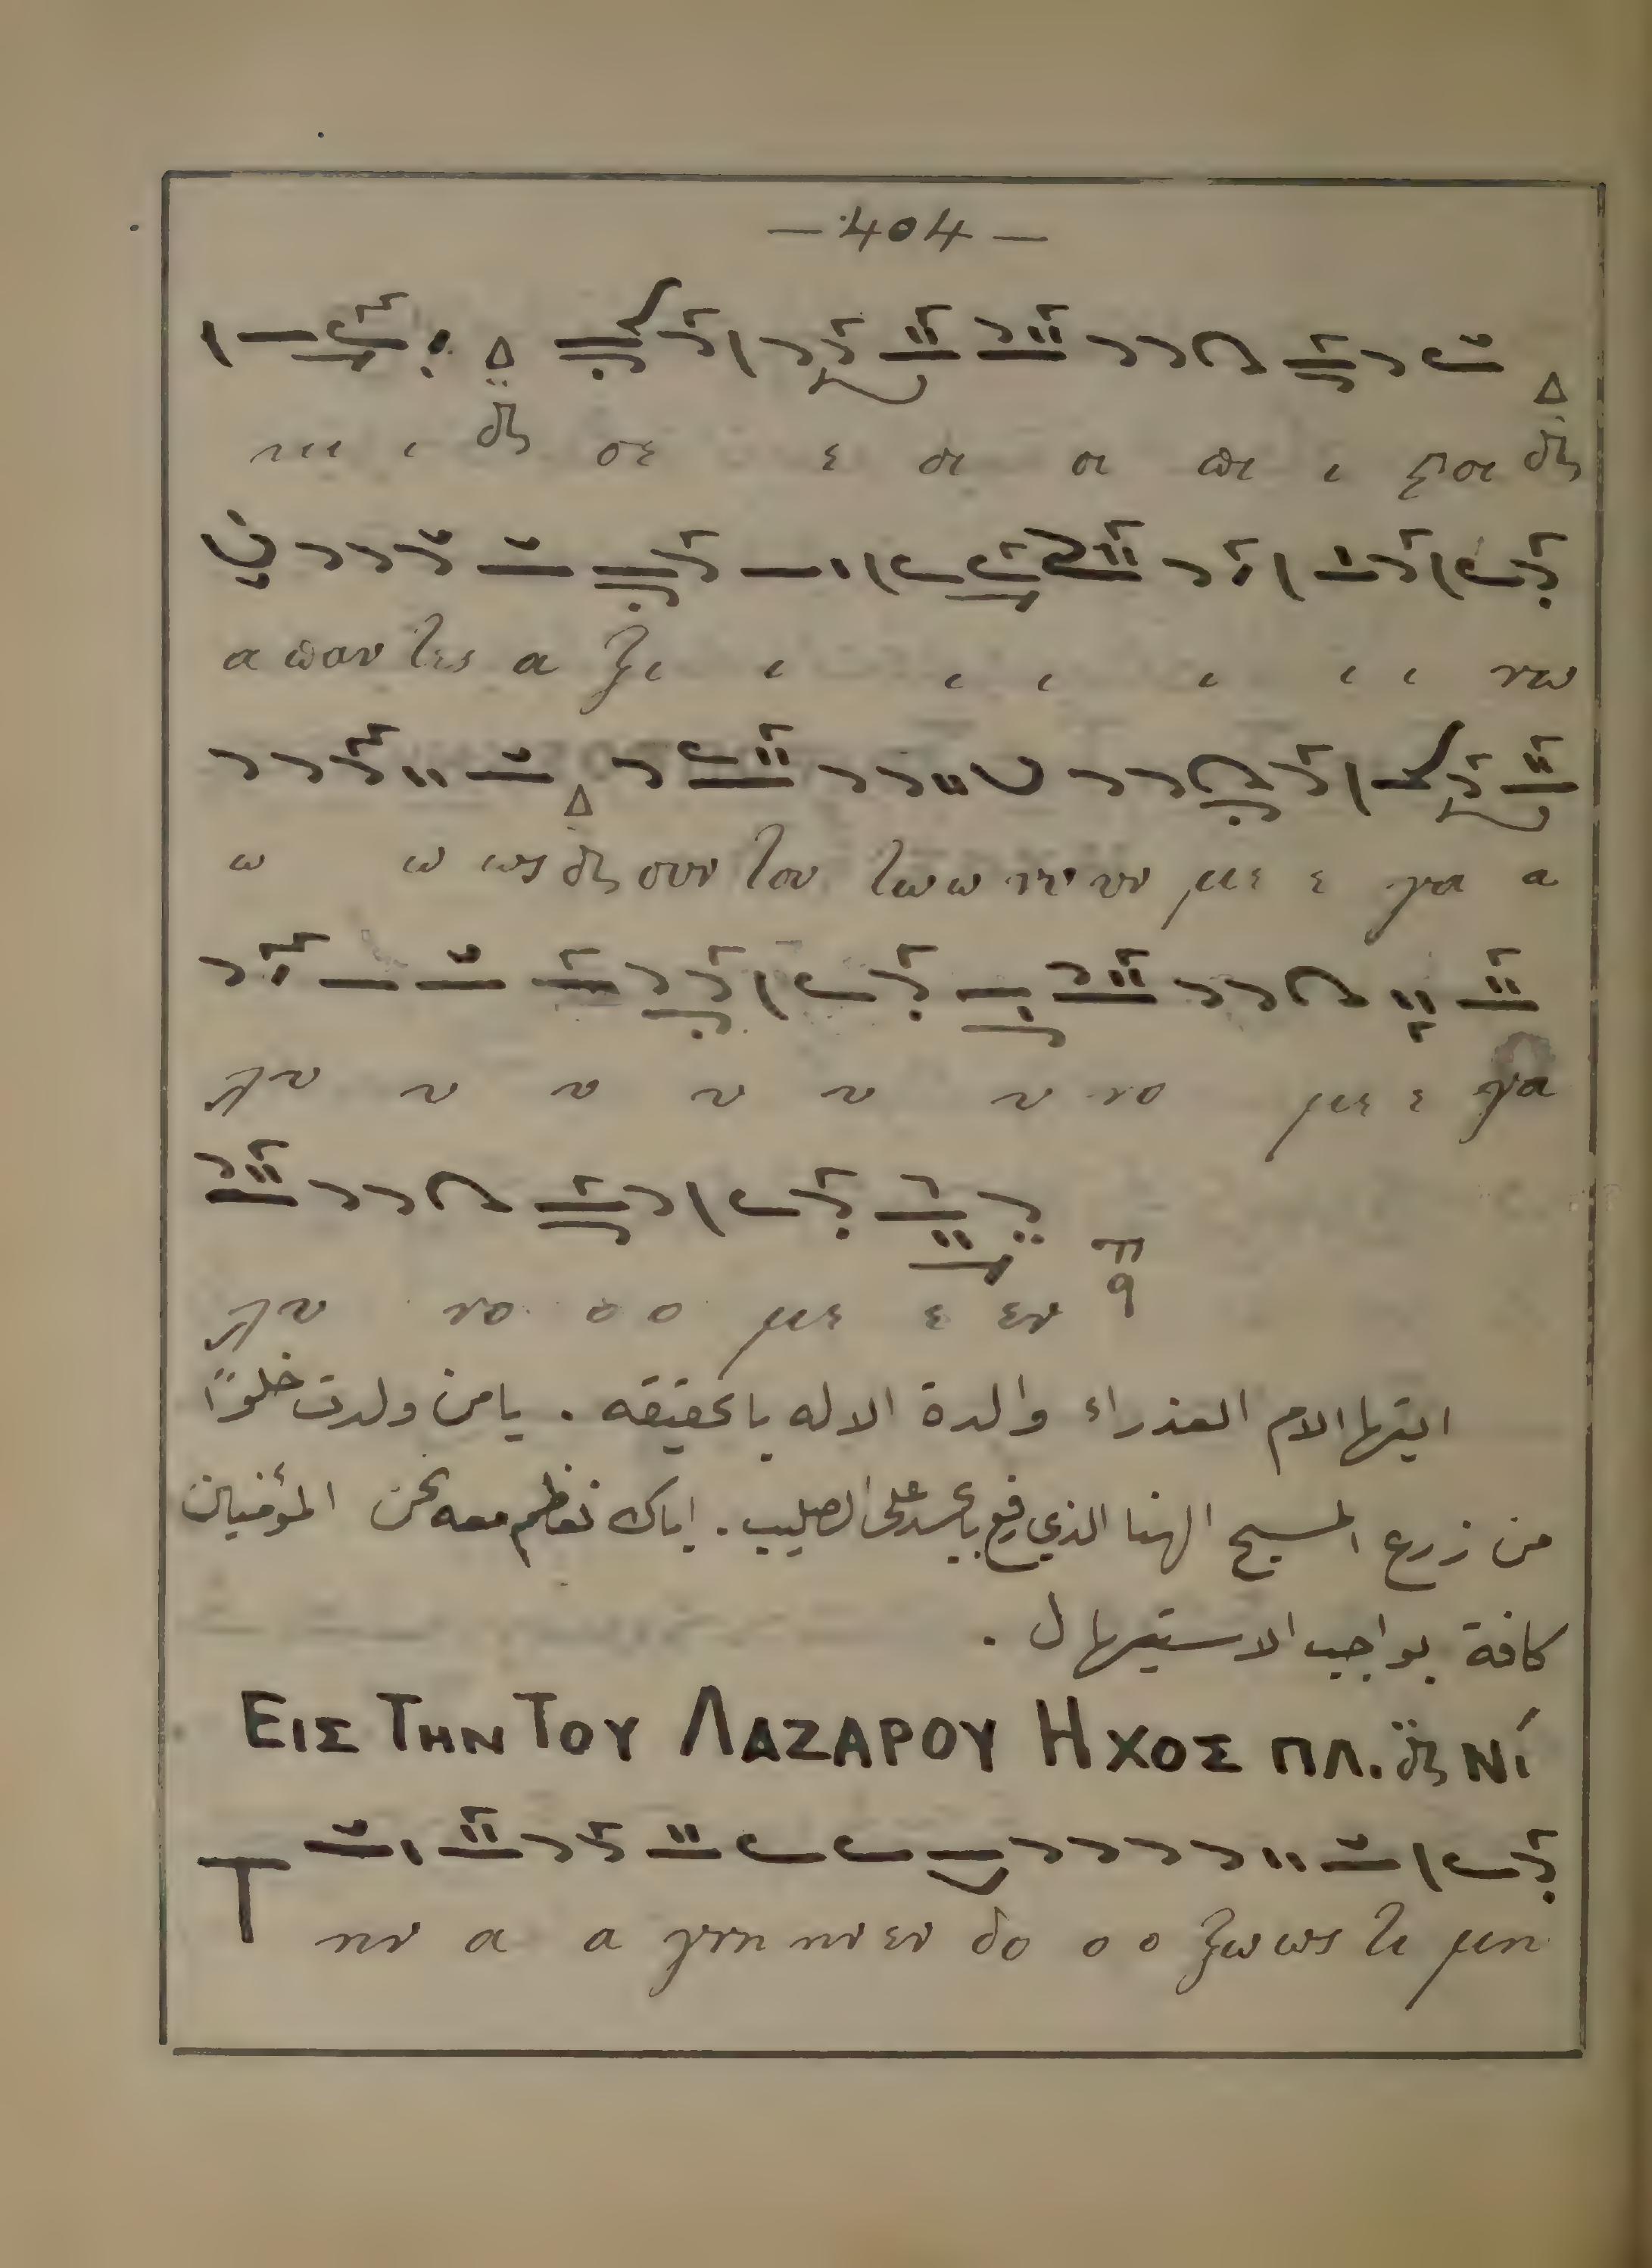 — 404 —
ηιι ι δι σε ε οι οι πι ι ροι δι
α παν τες α ξι ι ι ι ι ι ι νω
ω ω ως δι συν του τω ω νυ υν με ε γα α
λυ υ υ υ υ υ νο με ε γα
λυ νο ο ο με ε εν
ايتها الام العذراء والدة الاله بالحقيقه . يا من ولدت خلوًا
من زرع المسيح الهنا الذي رفع بالجسد على الصليب . اياك نعظم معه نحن المؤمنين
كافة بواجب الاستيهال .
ΕΙΣ ΤΗΝ ΤΟΥ ΛΑΖΑΡΟΥ ΗΧΟΣ ΠΛ. δ Νί
Τ ην α α γνη ην εν δο ο ο ξω ως τι μη